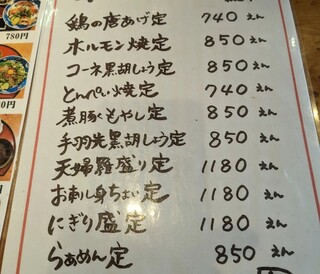 鶏の唐あげ定 740えん
ホルモン焼定 850えん
コーネ黒胡しょう定 850えん
とんぺい焼定 740えん
煮豚ともやし定 850えん
手羽先黒胡しょう定 850えん
天婦羅盛り定 1180えん
お刺し身ちょい定 1180えん
にぎり盛定 1180えん
らぁめん定 850えん
780円